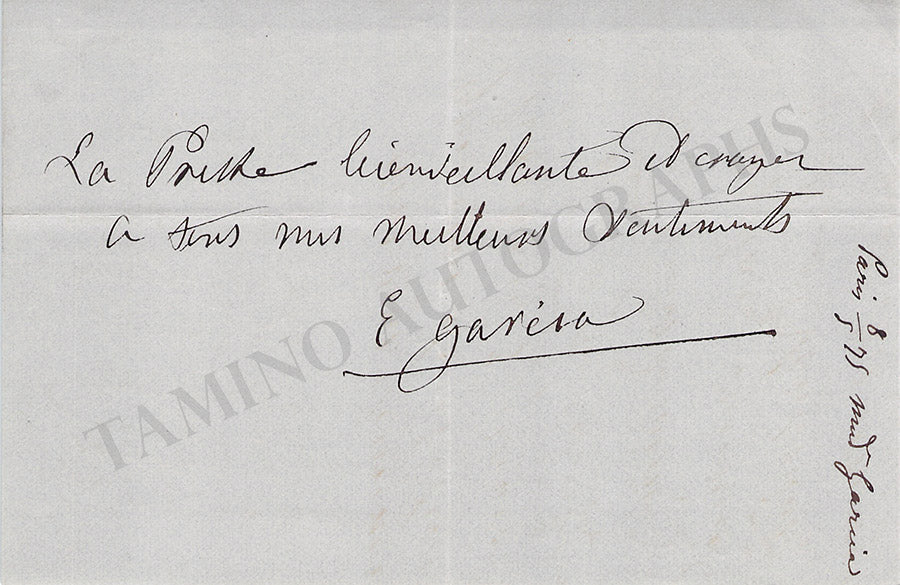 La Prestte bienveillante Et croyez
a tous nos meilleurs Sentiments
E garcia
Paris 8/5 75 Mad Garcia
TAMINO AUTOGRAPHS